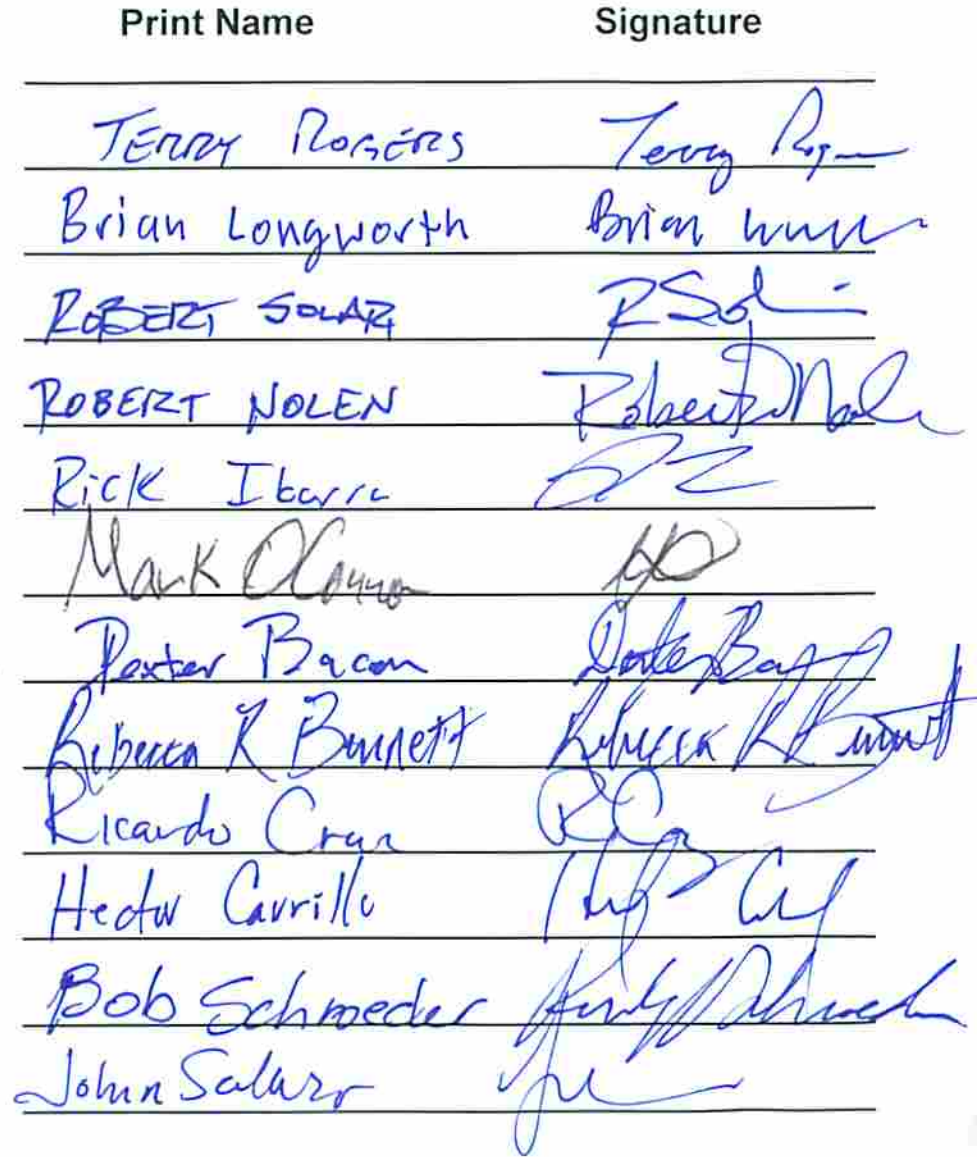 Print Name Signature
TERRY ROGERS Terry
Brian Longworth Brian
ROBERT SOLAR R Sol
ROBERT NOLEN Robert
Rick Ibarra
Mark OConnor
Dexter Bacon Dexter Bacon
Rebecca R Burnett Rebecca R Burnett
Ricardo Cruz
Hector Carrillo
Bob Schroeder Schroeder
John Salazar